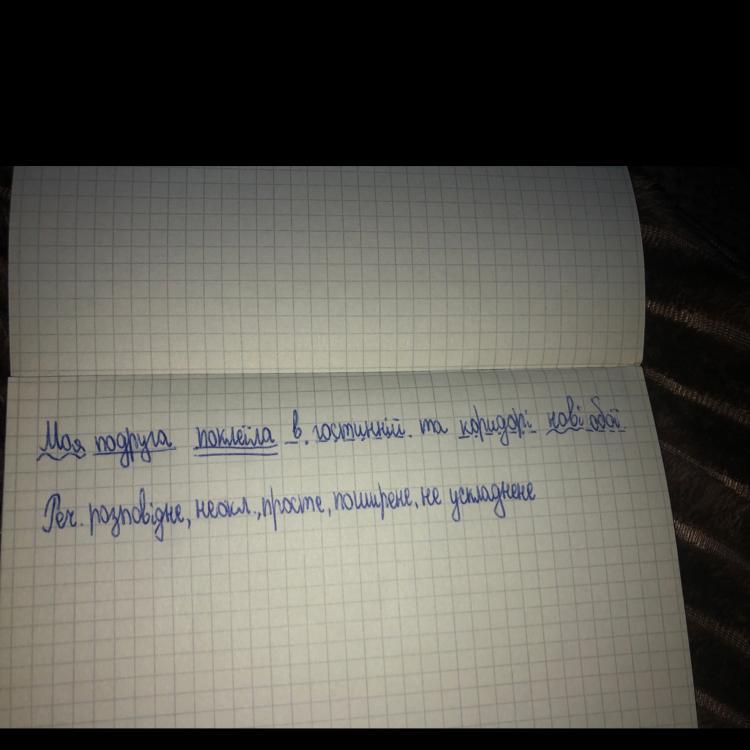 Моя подруга поклеїла в гостинній та коридорі нові обої
Реч. розповідне, неокл., просте, поширене, не ускладнене